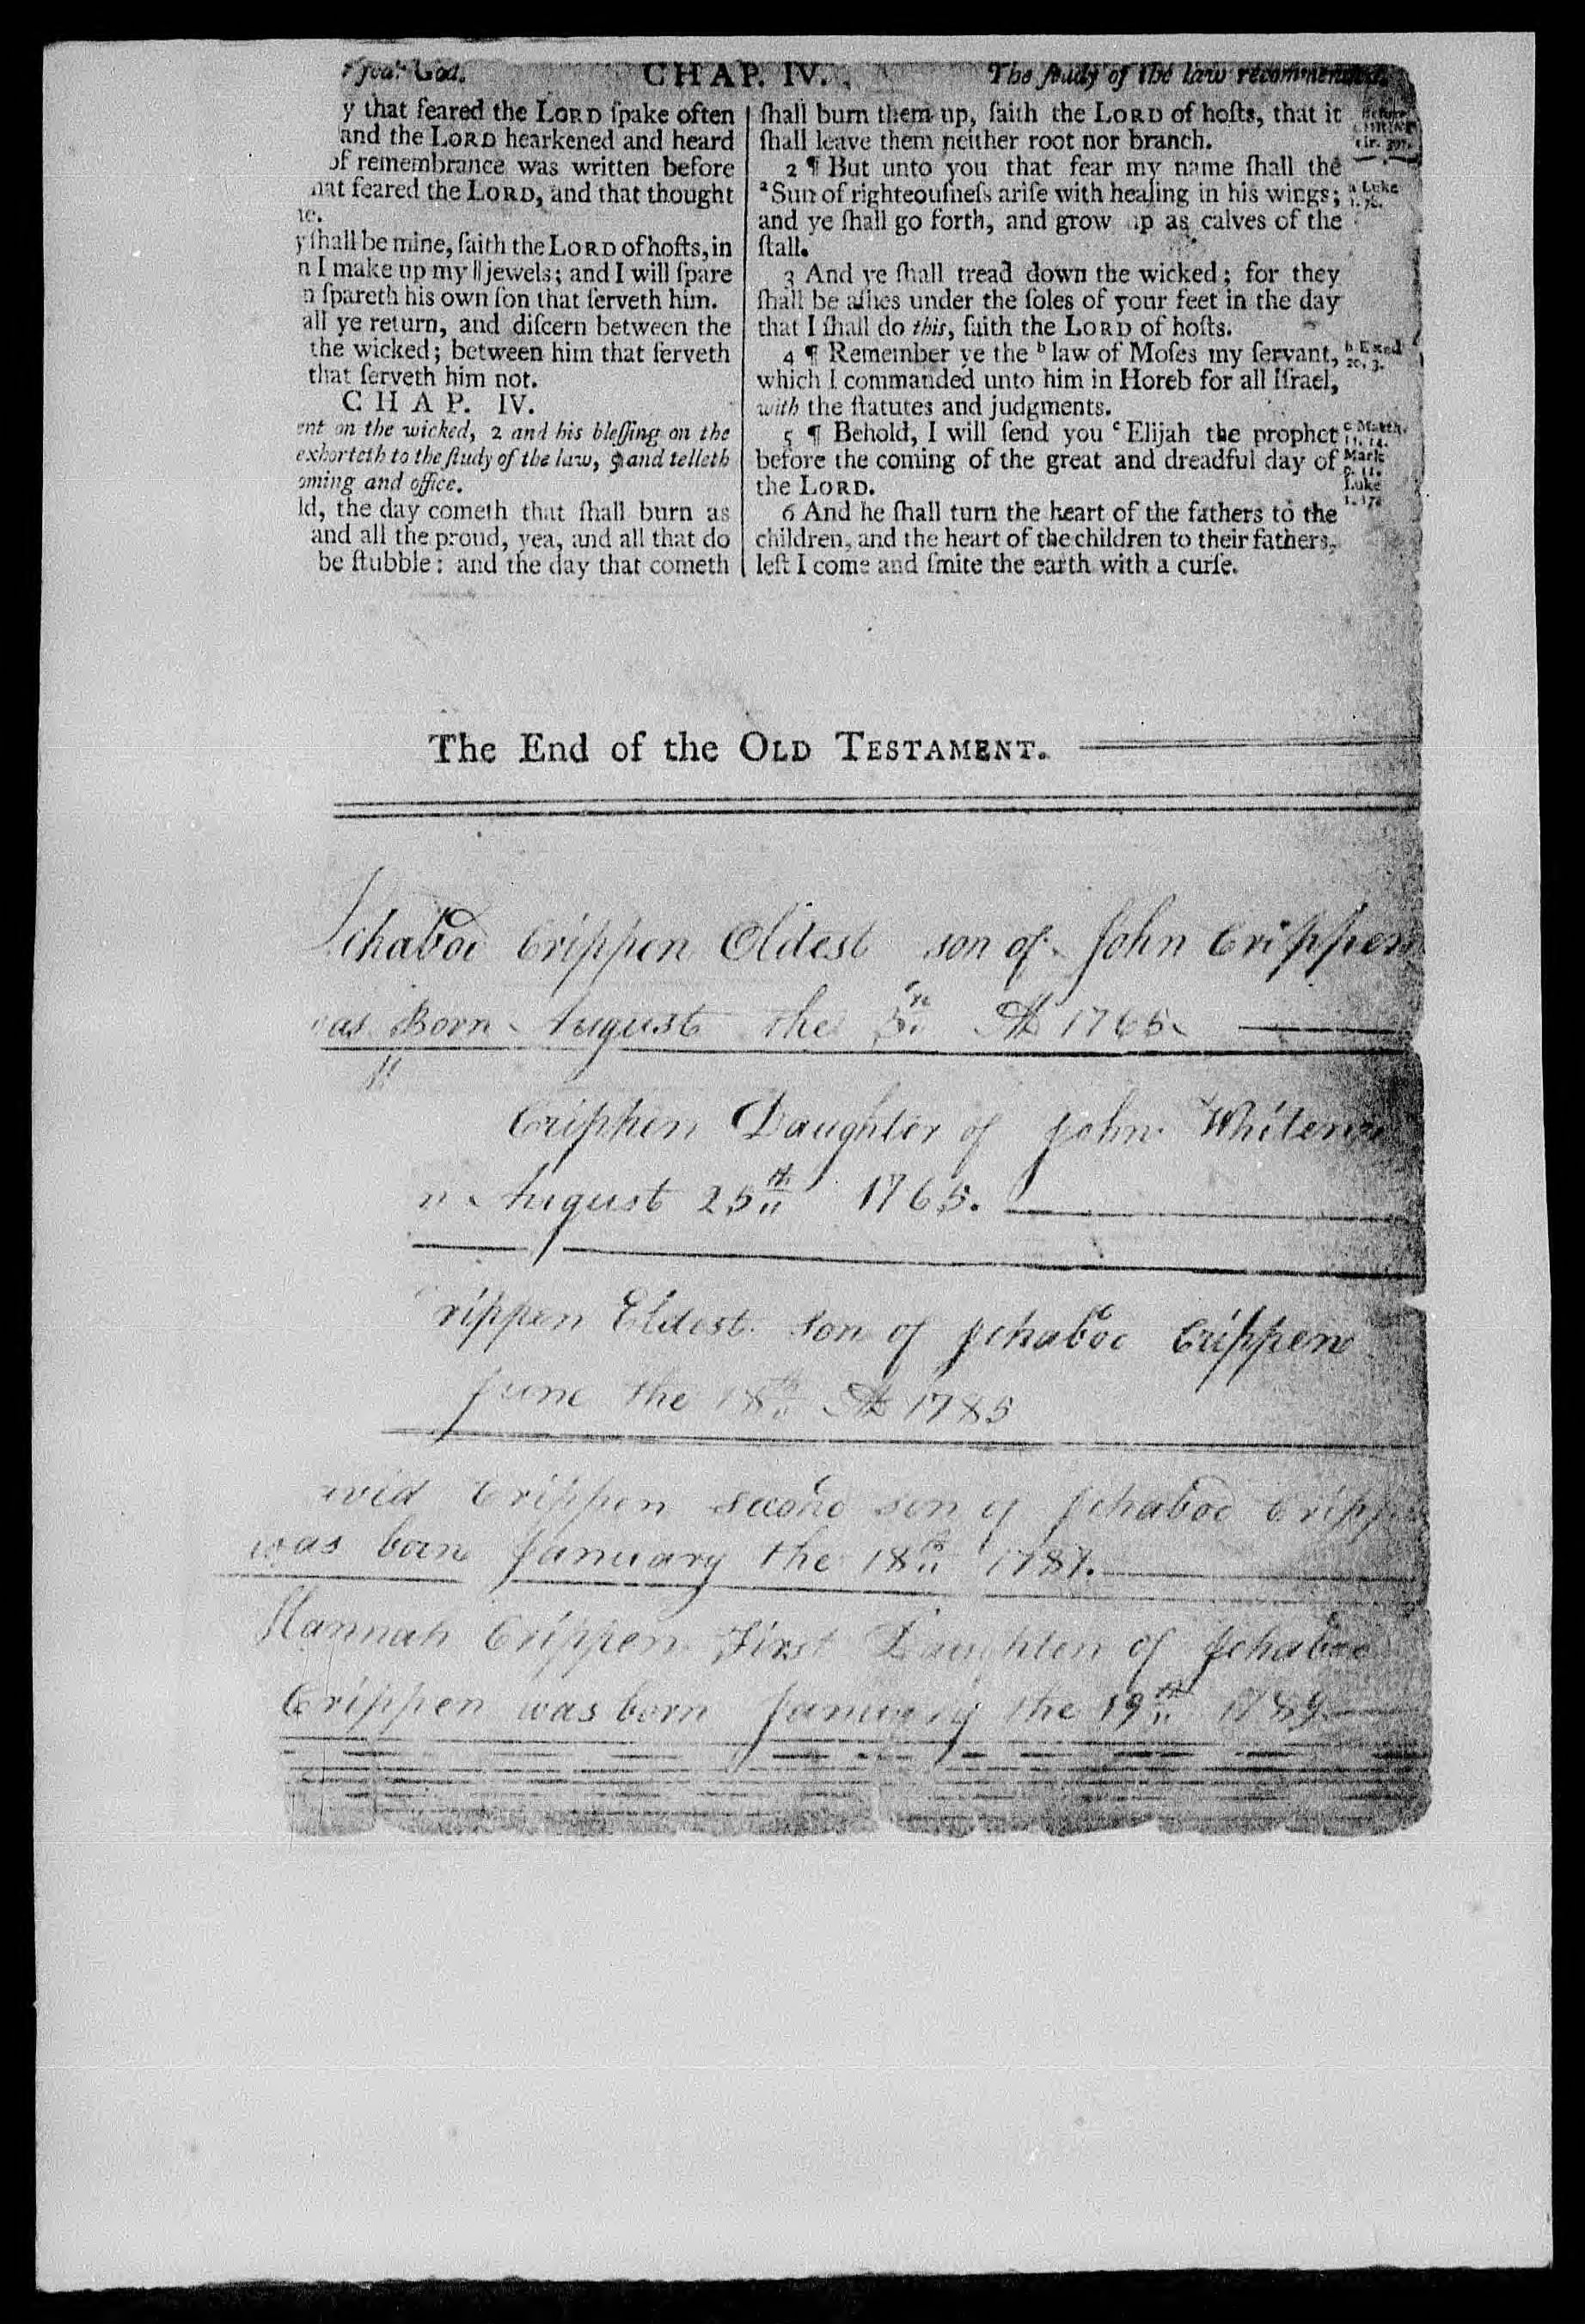 God. CHAP. IV. The ſtudy of the law recommended.
y that feared the LORD ſpake often
and the LORD hearkened and heard
of remembrance was written before
hat feared the LORD, and that thought
y ſhall be mine, ſaith the LORD of hoſts, in
n I make up my || jewels; and I will ſpare
n ſpareth his own ſon that ſerveth him.
all ye return, and diſcern between the
the wicked; between him that ſerveth
that ſerveth him not.
CHAP. IV.
ent on the wicked, 2 and his bleſſing on the
exhorteth to the ſtudy of the law, 5 and telleth
oming and office.
ld, the day cometh that ſhall burn as
and all the proud, yea, and all that do
be ſtubble: and the day that cometh
ſhall burn them up, ſaith the LORD of hoſts, that it
ſhall leave them neither root nor branch.
2 ¶ But unto you that fear my name ſhall the
a Sun of righteouſneſs ariſe with healing in his wings;
and ye ſhall go forth, and grow up as calves of the
ſtall.
3 And ye ſhall tread down the wicked; for they
ſhall be aſhes under the ſoles of your feet in the day
that I ſhall do this, ſaith the LORD of hoſts.
4 ¶ Remember ye the b law of Moſes my ſervant,
which I commanded unto him in Horeb for all Iſrael,
with the ſtatutes and judgments.
5 ¶ Behold, I will ſend you c Elijah the prophet
before the coming of the great and dreadful day of
the LORD.
6 And he ſhall turn the heart of the fathers to the
children, and the heart of the children to their fathers,
leſt I come and ſmite the earth with a curſe.
Before
CHRIST
cir. 397.
a Luke
1. 78.
b Exod.
20. 3.
c Matth.
11. 14.
Mark
9. 11.
Luke
1. 17.
The End of the OLD TESTAMENT.
Ichabod Crippen Oldest son of John Crippen
was Born August the 5th AD 1765
Crippen Daughter of John
n August 25th 1765.
rippen Eldest son of Ichabod Crippen
June the 18th AD 1785
avid Crippen second son of Ichabod Cripp
was born January the 18th 1787.
Hannah Crippen First Daughter of Ichabod
Crippen was born January the 19th 1789